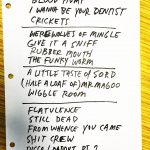 I WANNA BE YOUR DENTIST
CRICKETS
WEREWOLVES OF MINGLE
GIVE IT A SNIFF
RUBBER MOUTH
THE FUNKY WORM
A LITTLE TASTE OF SORD
(HALF A LOAF OF) MR. MAGOO
WIGGLE ROOM
FLATULENCE
STILL DEAD
FROM WHENCE YOU CAME
SHIT CREW